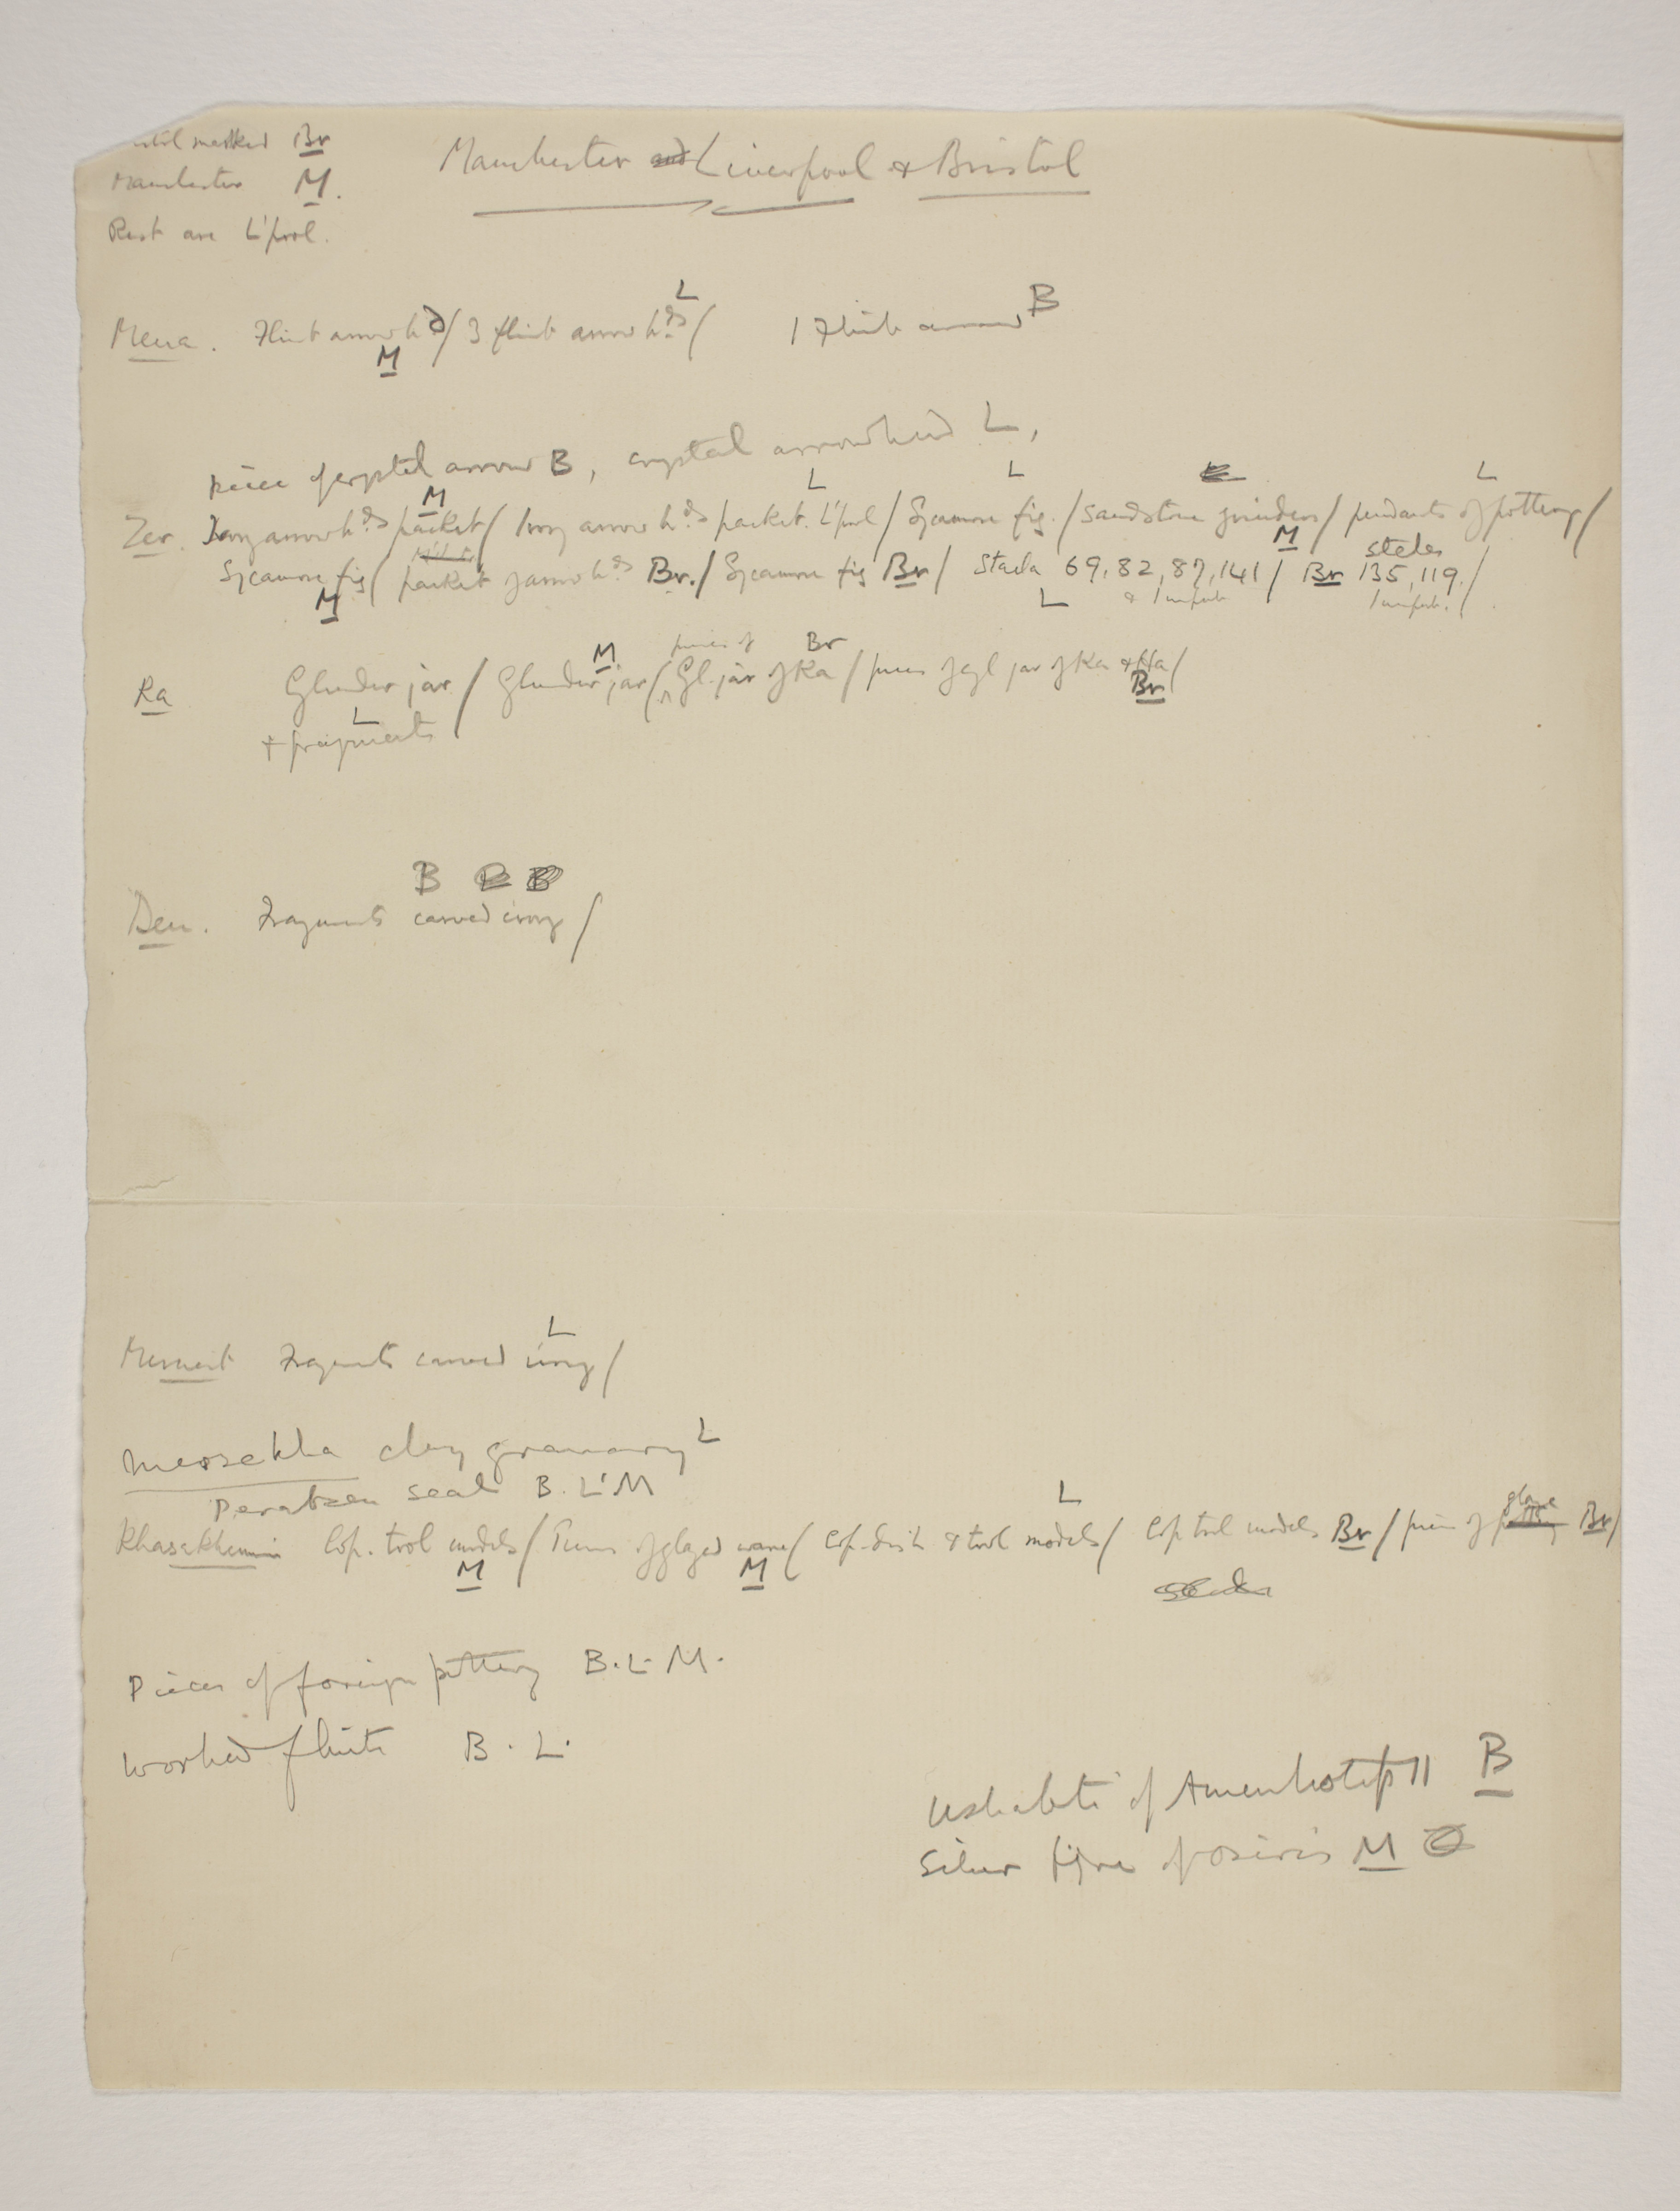 marked Br
Manchester M.
Rest are L'pool.
Manchester and Liverpool & Bristol
Mena. Flint arrow hd M / 3 flint arrow hds L / 1 Flint arrow B
piece of crystal arrow B, crystal arrowhead L,
Zer. Ivory arrow hds packet M / Ivory arrow hds packet. L'pool L / Sycamore fig. L / sandstone grinders M / pendants of pottery L /
Sycamore fig M / packet of arrow hds Br. / Sycamore fig Br / Staela 69, 82, 87, 141 L & 1 imperf. / Br steles 135, 119. 1 imperf. /
Ra Cylinder jar L / Cylinder jar M / pieces of Cyl. jar of Ka Br / pieces of cyl jar of Ka + Ha Br /
+ fragments
Den. Fragments carved ivory B /
Mersekha clay granary L
Perabsen seal B. L. M
Khasekhemui Cop. tool models M / Pieces of glazed ware M / Cop. dish & tool models L / Cop tool models Br / piece of glaze Br /
Pieces of foreign pottery B. L. M.
Worked flints B. L.
Ushabti of Amenhotep II B
Silver figure of Osiris M